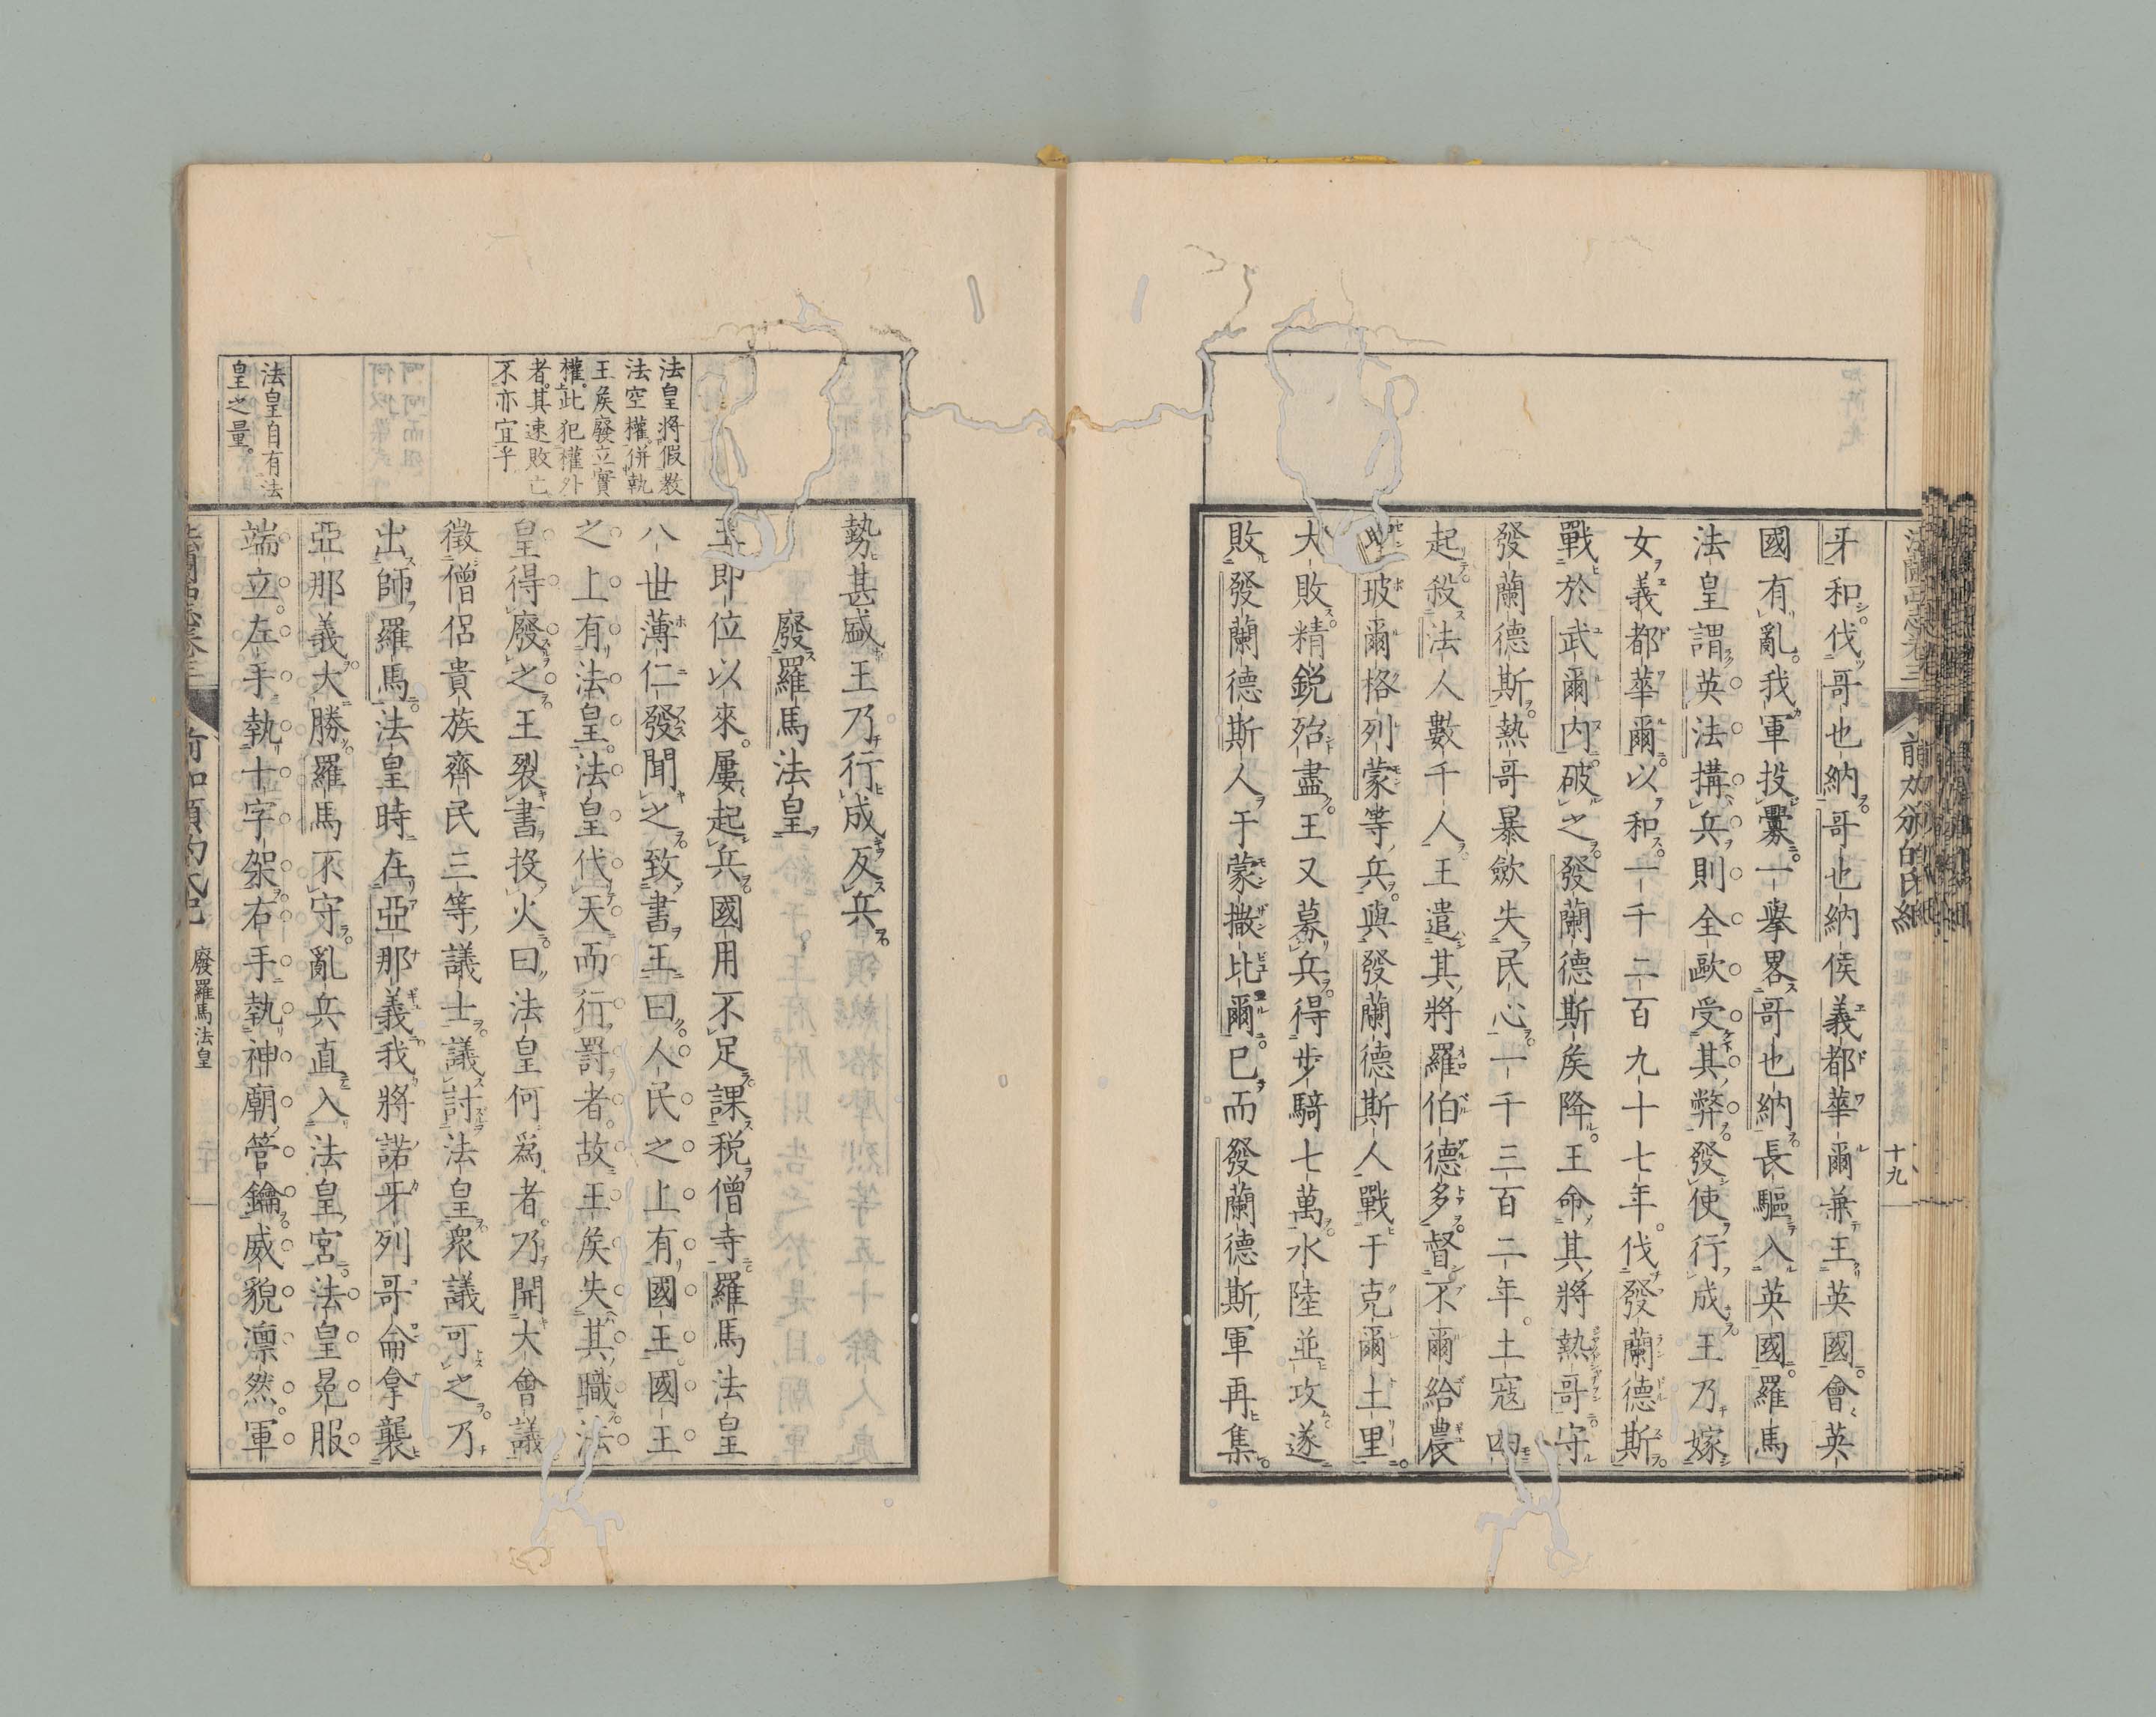 十九
牙和伐哥也納哥也納侯義都華爾兼王英國會英
國有亂我軍投釁一擧畧哥也納長驅入英國羅馬
法皇謂英法搆兵則全歐受其弊發使行成王乃嫁
女義都華爾以和一千二百九十七年伐發蘭德斯
戰於武爾内破之發蘭德斯矦降王命其將熱哥守
發蘭德斯熱哥暴歛失民心一千三百二年土寇四
起殺法人數千人王遣其將羅伯德多督不爾給農
玻爾格列蒙等兵與發蘭德斯人戰于克爾土里
大敗精銳殆盡王又募兵得步騎七萬水陸並攻遂
敗發蘭德斯人于蒙撒比爾已而發蘭德斯軍再集
勢甚盛王乃行成反兵
廢羅馬法皇
王即位以來屢起兵國用不足課税僧寺羅馬法皇
八世薄仁發聞之致書王曰人民之上有國王國王
之上有法皇法皇代天而行罸者故王矦失其職法
皇得廢之王裂書投火曰法皇何爲者乃開大會議
徵僧侶貴族齊民三等議士議討法皇衆議可之乃
出師羅馬法皇時在亞那義我將諾牙列哥侖拿襲
亞那義大勝羅馬不守亂兵直入法皇宮法皇冕服
端立左手執十字架右手執神廟管鑰威貌凛然軍
法皇將假教
法空權併執
王矦廢立實
權此犯權外
者其速敗亡
不亦宜乎
法皇自有法
皇之量
廢羅馬法皇